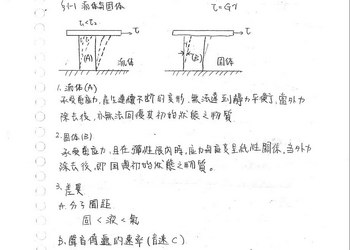 §1-1 流体與固体
τ=Gγ
τ₁<τ₂
τ
τ
(A)
流体
(B)
固体
1. 流体(A)
承受剪應力,產生連續不斷的變形,無法達到靜力平衡,當外力
除去後,亦無法回復其初始狀態之物質
2. 固体(B)
承受剪應力,且在彈性限內時,應力與應變呈線性關係,當外力
除去後,即回復初始狀態之物質。
3. 差異
A. 分子間距
固<液<氣
B. 聲音傳遞的速率(音速C)